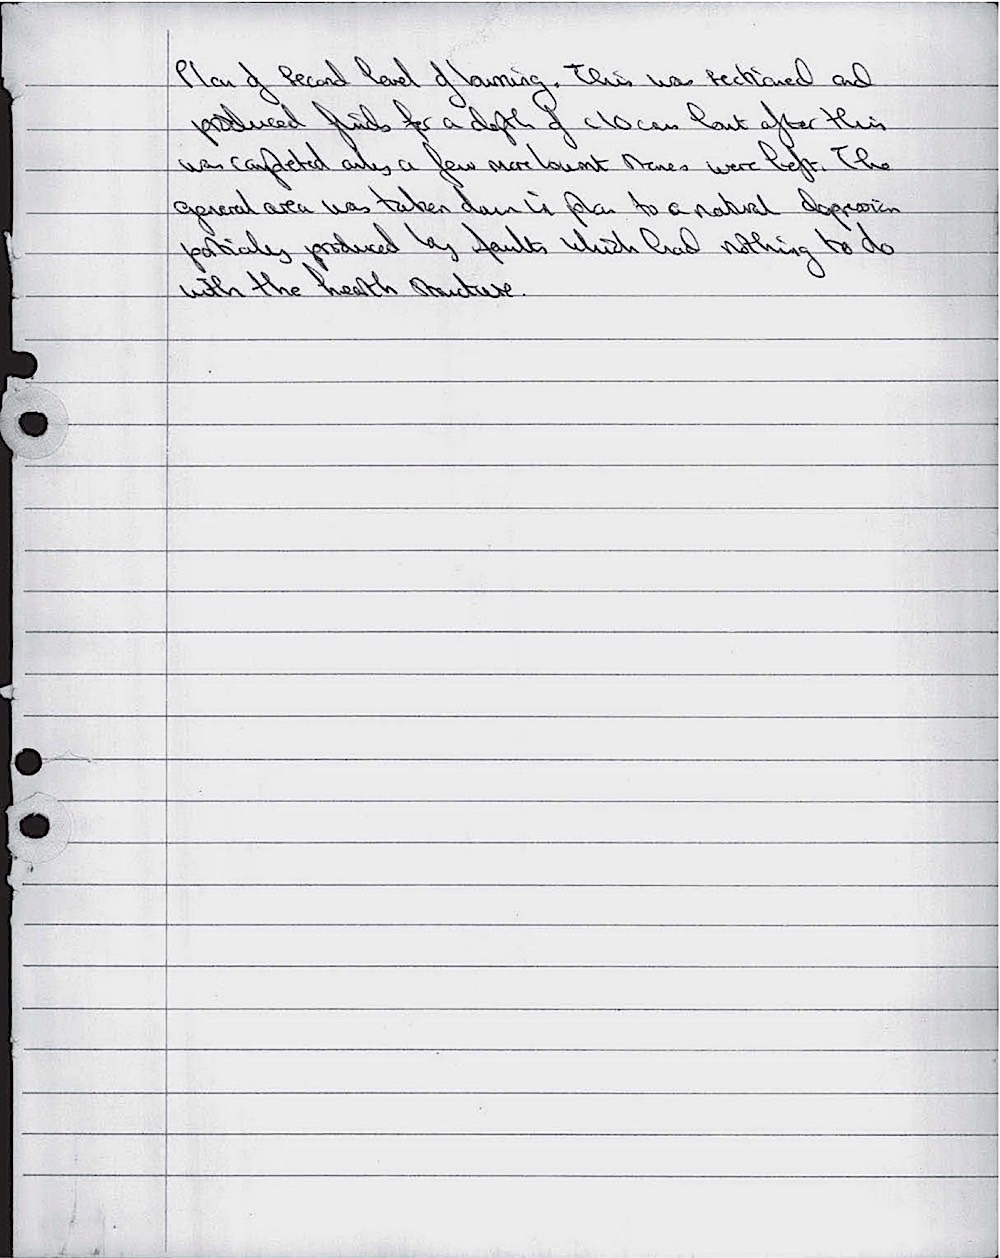 Plan of second level of burning. This was sectioned and
produced finds for a depth of c10cm but after this
was completed only a few more burnt stones were left. The
general area was taken down in plan to a natural depression
partially produced by faults which had nothing to do
with the hearth structure.